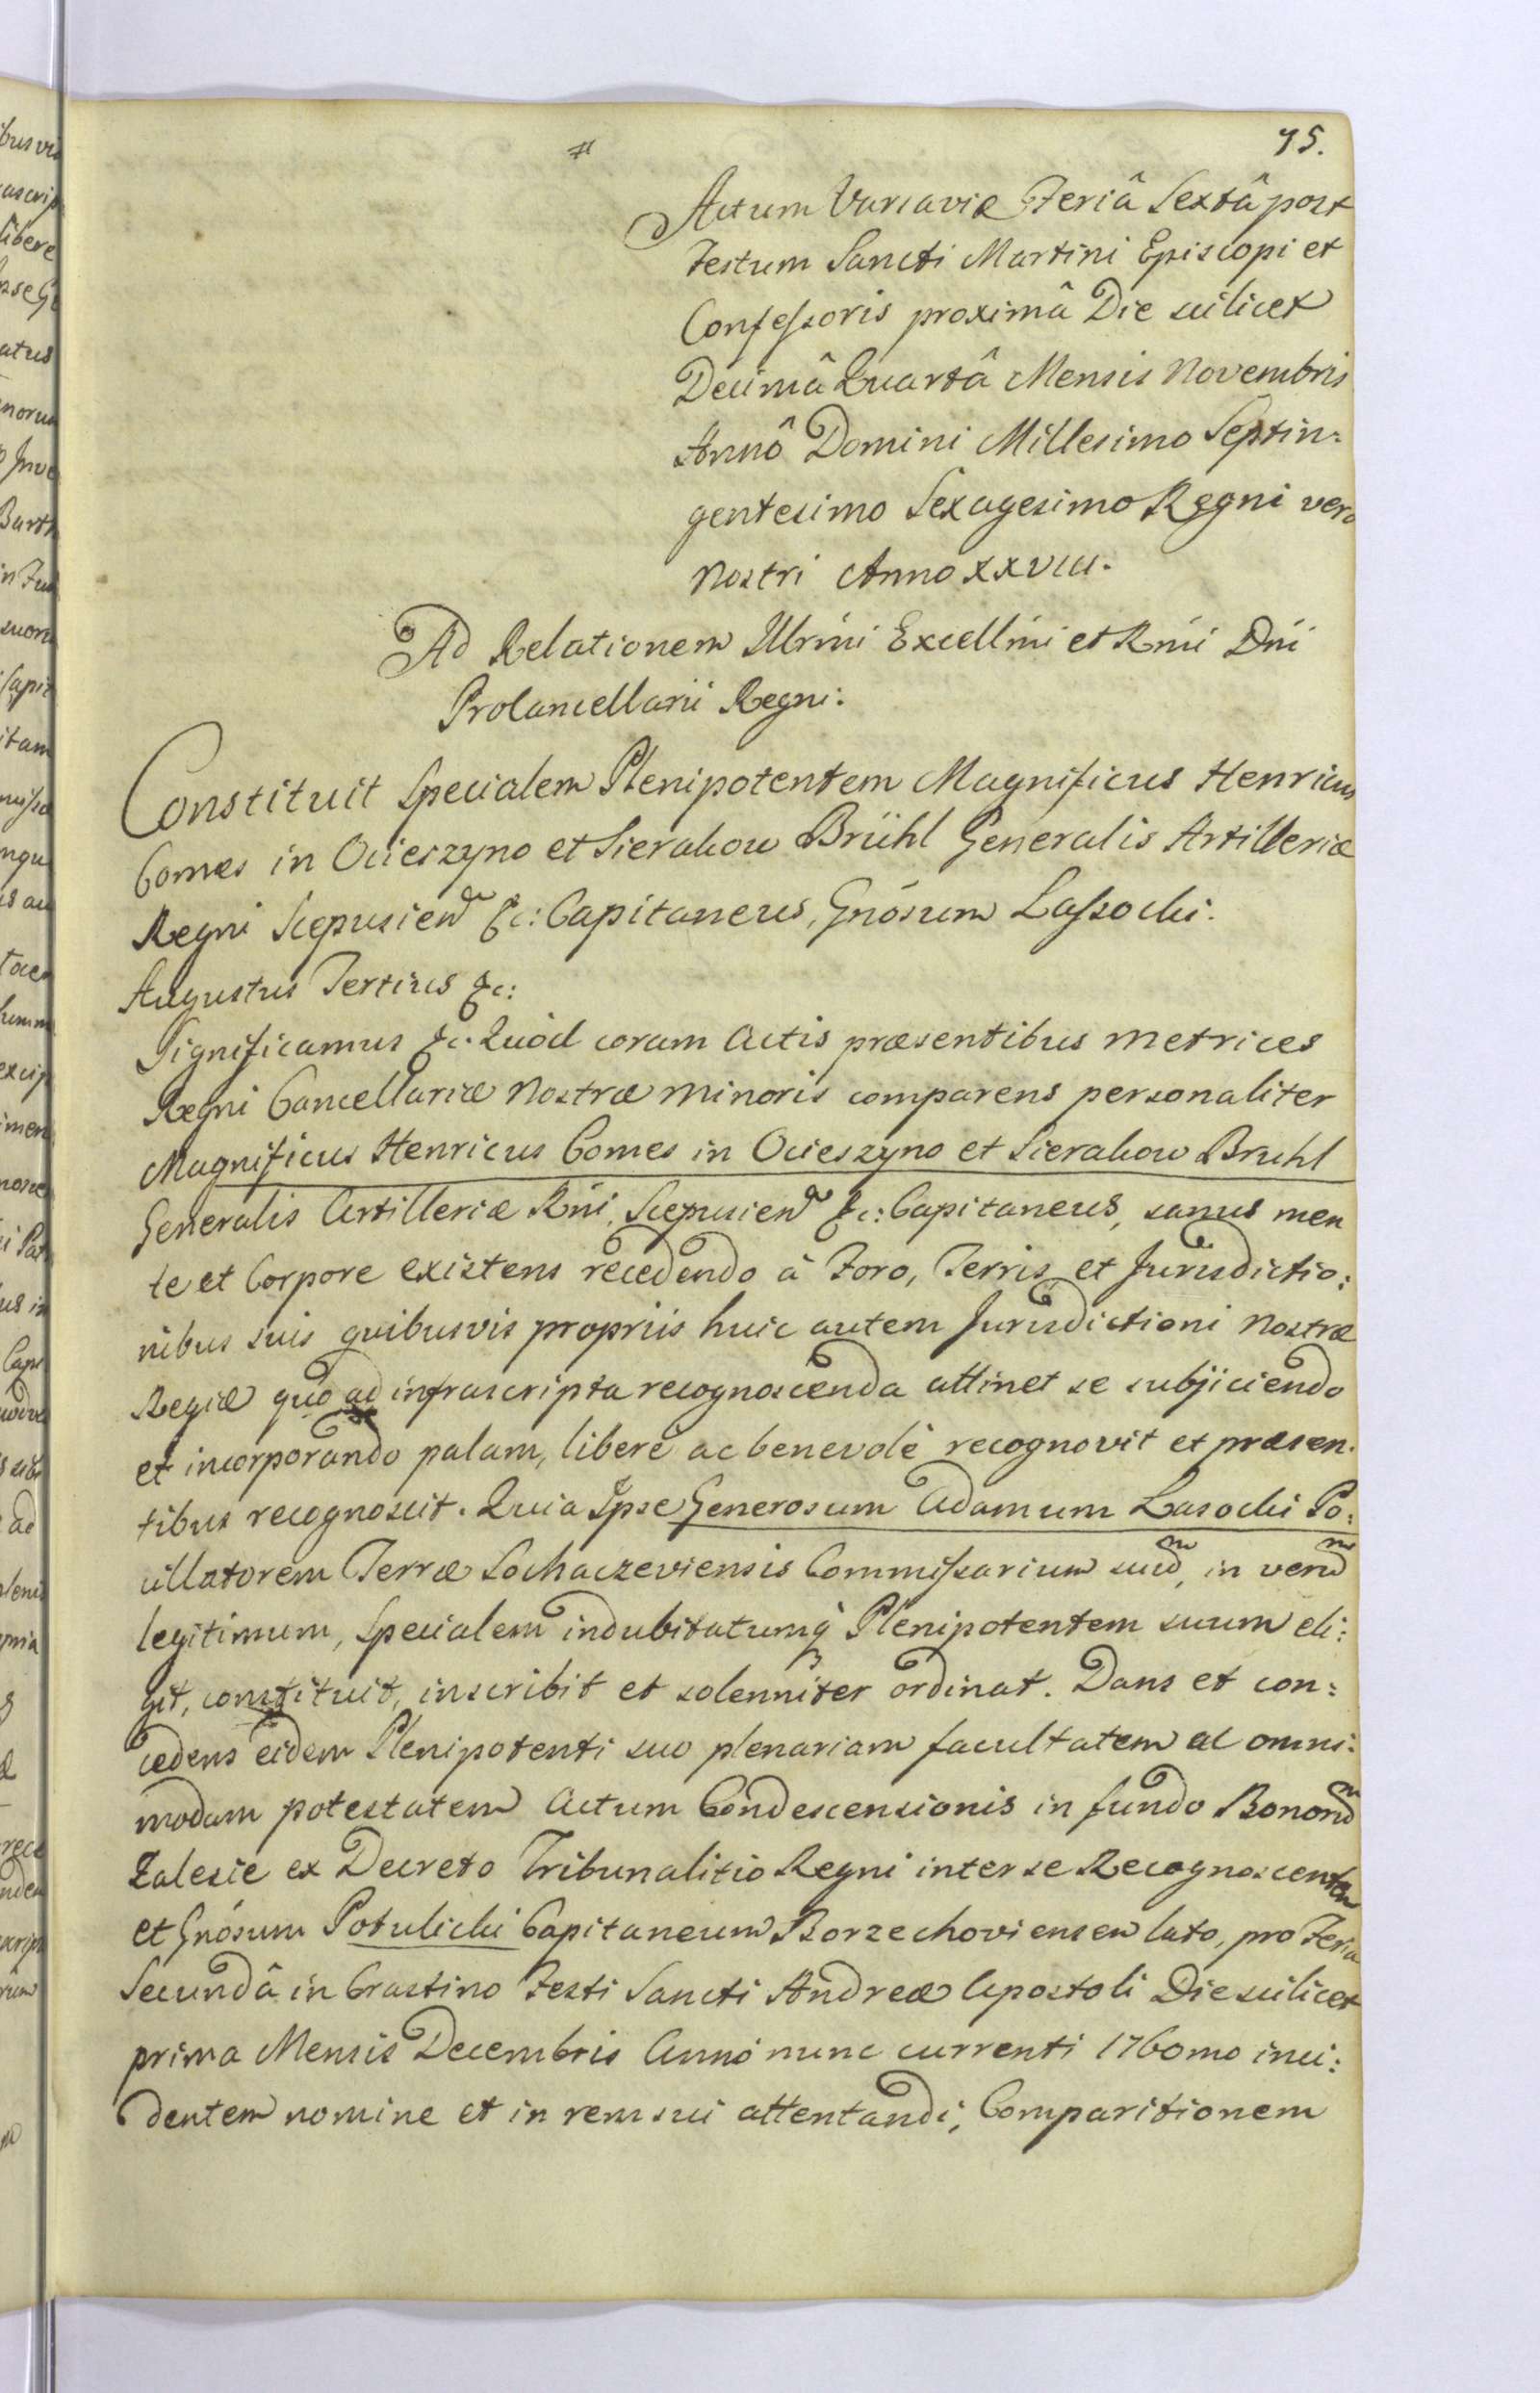 75.
Actum Varsaviæ Feriâ Sextâ post
Festum Sancti Martini Episcopi et
Confessoris proximâ Die scilicet
Decimâ Quartâ Mensis Novembris
Annô Domini Millesimo Septin:
gentesimo Sexagesimo Regni vero
Nostri Anno XXVIII.
Ad Relationem Illrmi Excellmi et Rmi Dni
Procancellarii Regni:
Constituit Specialem Plenipotentem Magnificus Henricus
Comes in Ocieszyno et Sierakow Brühl Generalis Artilleriæ
Regni Scepusien &c: Capitaneus, Gnósum Lassocki.
Augustus Tertius &c:
Significamus &c. Quòd coram Actis præsentibus Metrices
Regni Cancellariæ Nostræ Minoris comparens personaliter
Magnificus Henricus Comes in Ocieszyno et Sierakow Bruhl
Generalis Artilleriæ Rni, Scepusien &c: Capitaneus, sanus men
te et Corpore existens recedendo à Foro, Terris et Jurisdictio:
nibus suis quibusvis propriis huic autem Jurisdictioni Nostræ
Regiæ quo ad infrascripta recognoscenda attinet se subjiciendo
et incorporando palam, liberè ac benevolè recognovit et præsen:
tibus recognoscit. Quia Ipse Generosum Adamum Lasocki Po:
cillatorem Terræ Sochaczeviensis Commissarium suũ, in verũ
legitimum, Specialem indubitatumq; Plenipotentem suum eli:
git, constituit, inscribit et solenniter ordinat. Dans et con:
cedens eidem Plenipotenti suo plenariam facultatem ac omni:
modam potestatem Actum Condescensionis in fundo Bonorũ
Zalesie ex Decreto Tribunalitio Regni inter se Recognoscentem
et Gnósum Potulicki Capitaneum Borzechoviensem lato, pro Feria
Secundâ in Crastino Festi Sancti Andreæ Apostoli Die scilicet
prima Mensis Decembris Annô nunc currenti 1760mo inci:
dentem nomine et in rem sui attentandi, Comparitionem